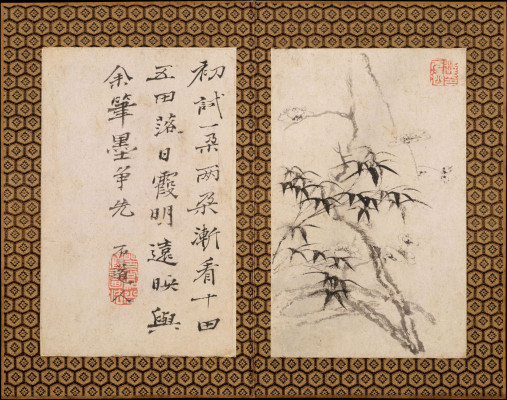 初試一朶兩朶漸看十田
五田落日霞明遠映與
余筆墨争先
石濤